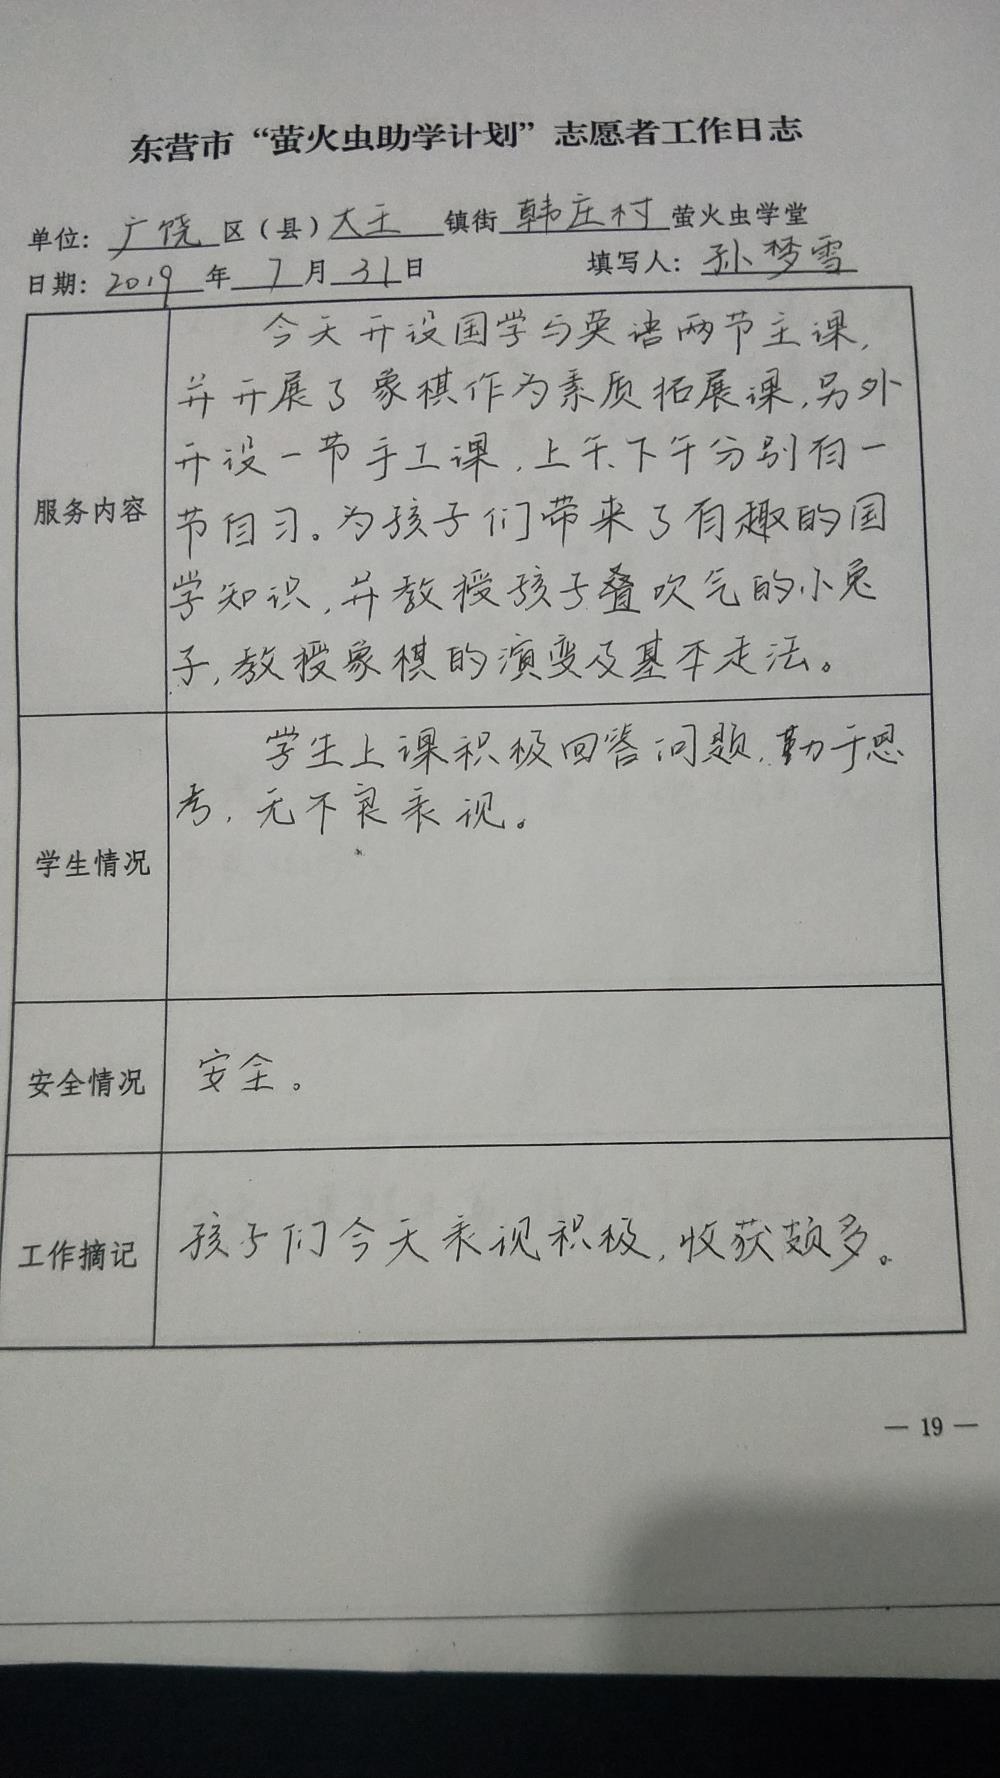 东营市“萤火虫助学计划”志愿者工作日志
单位：广饶区（县）大王镇街韩庄村萤火虫学堂
日期：2019年7月31日 填写人：孙梦雪
服务内容
今天开设国学与英语两节主课，
并开展了象棋作为素质拓展课，另外
开设一节手工课，上午、下午分别有一
节自习。为孩子们带来了有趣的国
学知识，并教授孩子叠吹气的小兔
子，教授象棋的演变及基本走法。
学生情况
学生上课积极回答问题，勤于思
考，无不良表现。
安全情况
安全。
工作摘记
孩子们今天表现积极，收获颇多。
— 19 —